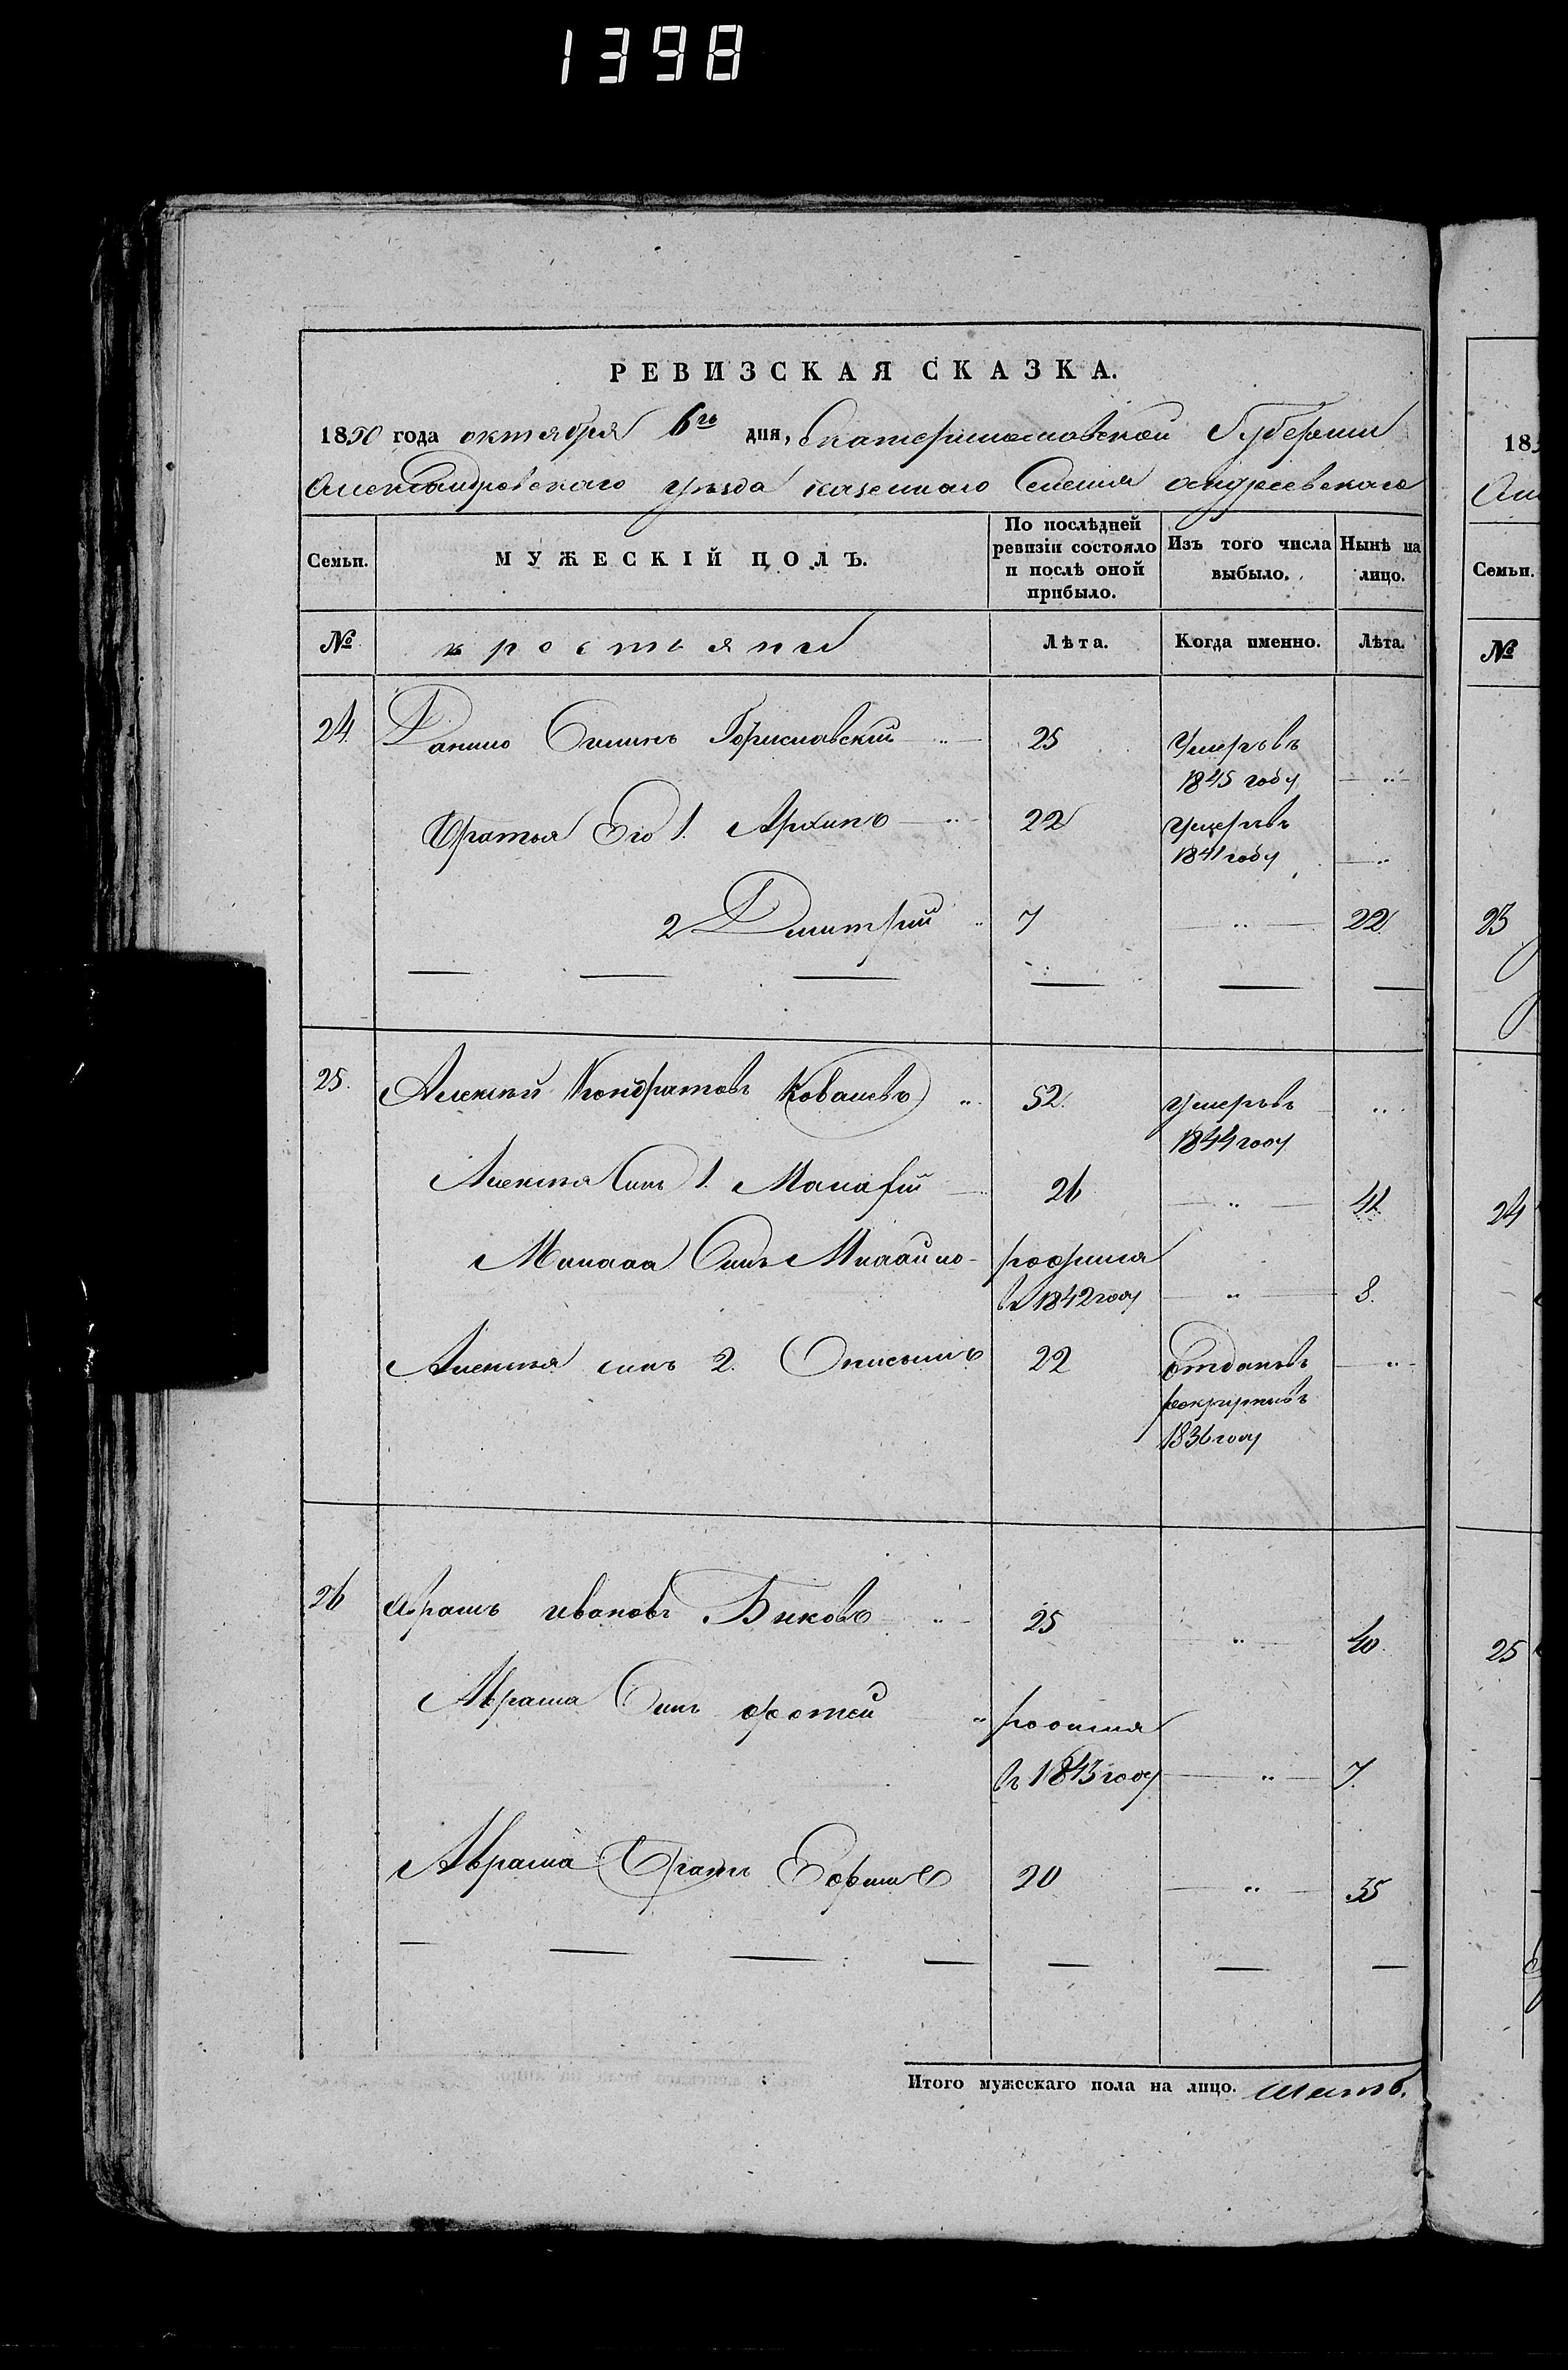 1398
РЕВИЗСКАЯ СКАЗКА.
1850 года октября 6го дня, Екатеринославской Губернии
Александровского уезда казенного Селения Андреевского
Семьи. МУЖЕСКІЙ ПОЛЪ. По послѣдней ревизіи состояло и послѣ оной прибыло. Изъ того числа выбыло. Нынѣ на лицо.
№ крестьяни Лѣта. Когда именно. Лѣта.
24. Данило 25 Умеръ въ
1845 году
Братья Его 1. Архипъ 22 Умеръ въ
1841 году
2 Дмитрій 7 22
25. Алексѣй Кондратовъ Ковалевъ 52. Умеръ въ
1844 году
Алексѣя Сынъ 1. 26 41
Сынъ Михайло родился
въ 1842 году 8.
Алексѣя сынъ 2. Онисимъ 22 Отданъ въ
рекруты въ
1836 году
26 Аврамъ Ивановъ Биковъ 25 40.
Аврама Сынъ Фотей родился
въ 1843 году 7.
Аврама Братъ Ефимъ 20 35
Итого мужескаго пола на лицо. шесть.
18
Семьи.
№
23
24
25